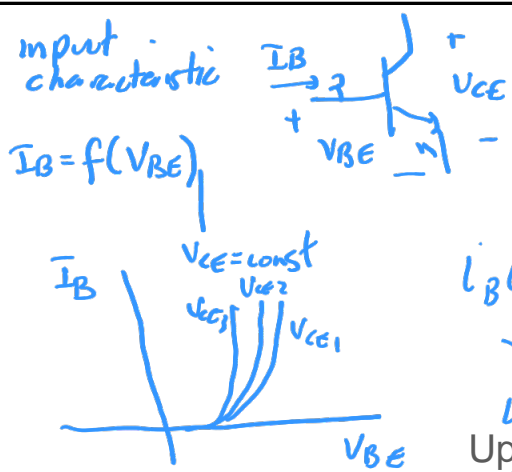 input
characteristic
IB
+
VCE
+
VBE
-
-
IB = f(VBE)|
VCE = const
IB
VCE3
VCE2
VCE1
VBE
iB
Up